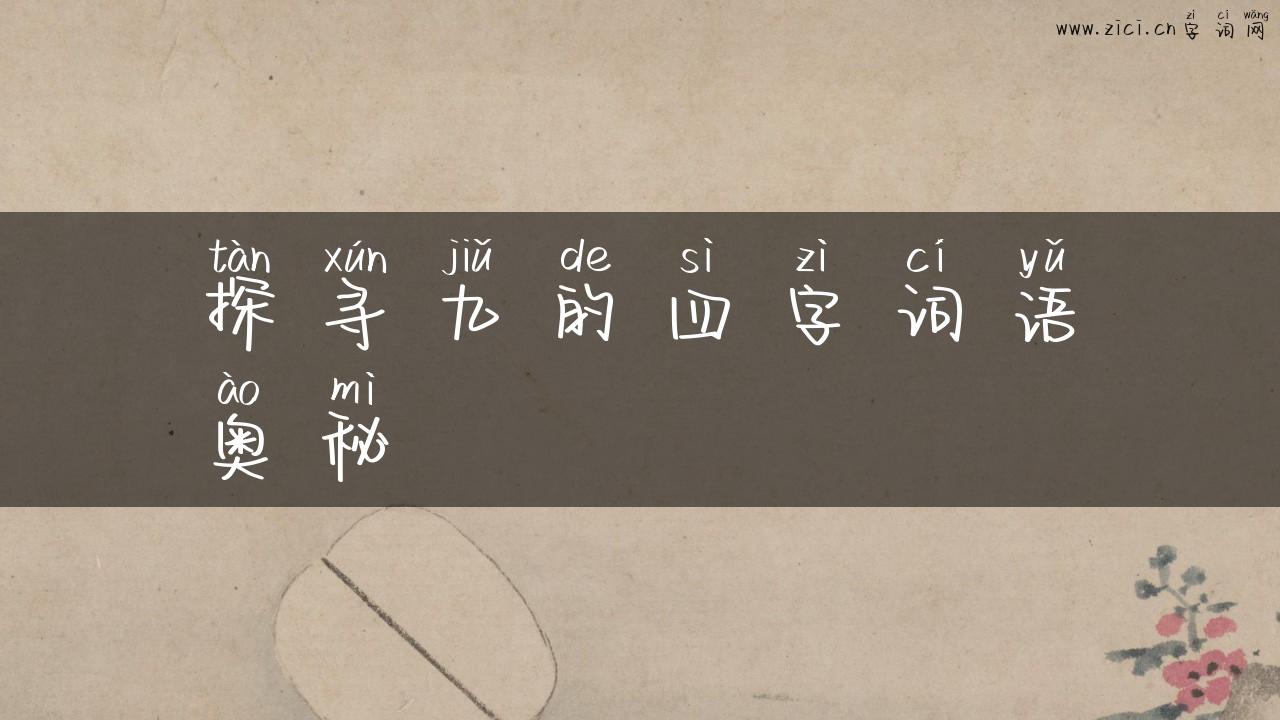 zì cí wǎng
www.zici.cn字词网
tàn xún jiǔ de sì zì cí yǔ
探寻九的四字词语
ào mì
奥秘